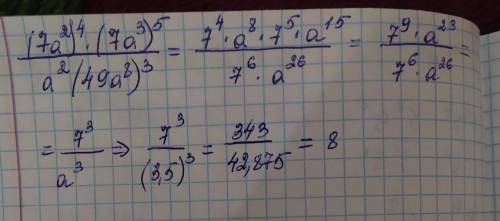 (7a²)⁴ · (7a³)⁵ / a²(49a⁸)³ = 7⁴ · a⁸ · 7⁵ · a¹⁵ / 7⁶ · a²⁶ = 7⁹ · a²³ / 7⁶ · a²⁶ =
= 7³ / a³ ⇒ 7³ / (3,5)³ = 343 / 42,875 = 8